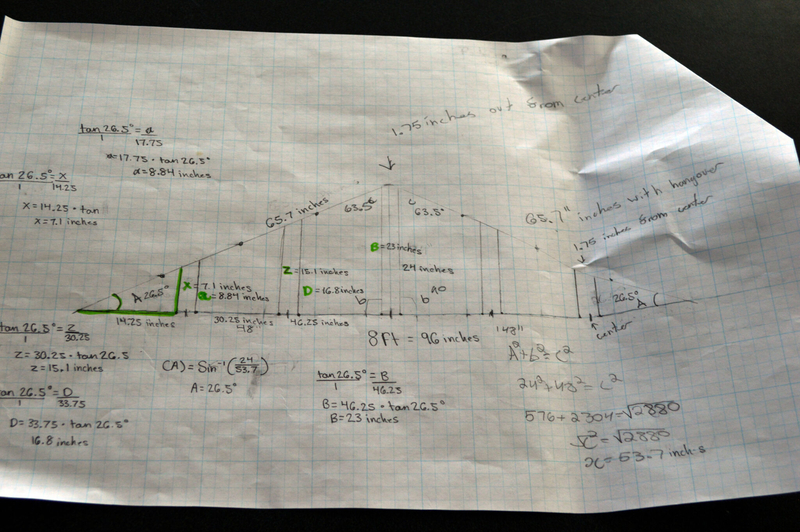 1.75 inches out from center
tan 26.5° = a
1 17.75
x=17.75 · tan 26.5°
a=8.84 inches
tan 26.5° = X
1 14.25
X=14.25 · tan
x=7.1 inches
65.7 inches
63.5°
63.5°
65.7" inches with hangover
1.75 inches from center
B=23 inches
24 inches
Z=15.1 inches
D=16.8 inches
X=7.1 inches
a=8.84 inches
A 26.5°
26.5° A
b
b
90
14.25 inches
30.25 inches
48
46.25 inches
8ft = 96 inches
"48"
center
tan 26.5° = Z
1 30.25
Z=30.25 · tan 26.5
z=15.1 inches
(A) = Sin⁻¹(24/53.7)
A=26.5°
tan 26.5° = B
1 46.25
B=46.25 · tan 26.5°
B=23 inches
tan 26.5° = D
1 33.75
D=33.75 · tan 26.5°
16.8 inches
A²+b²=c²
24²+48²=c²
576+2304=√2880
√x²=√2880
x=53.7 inches